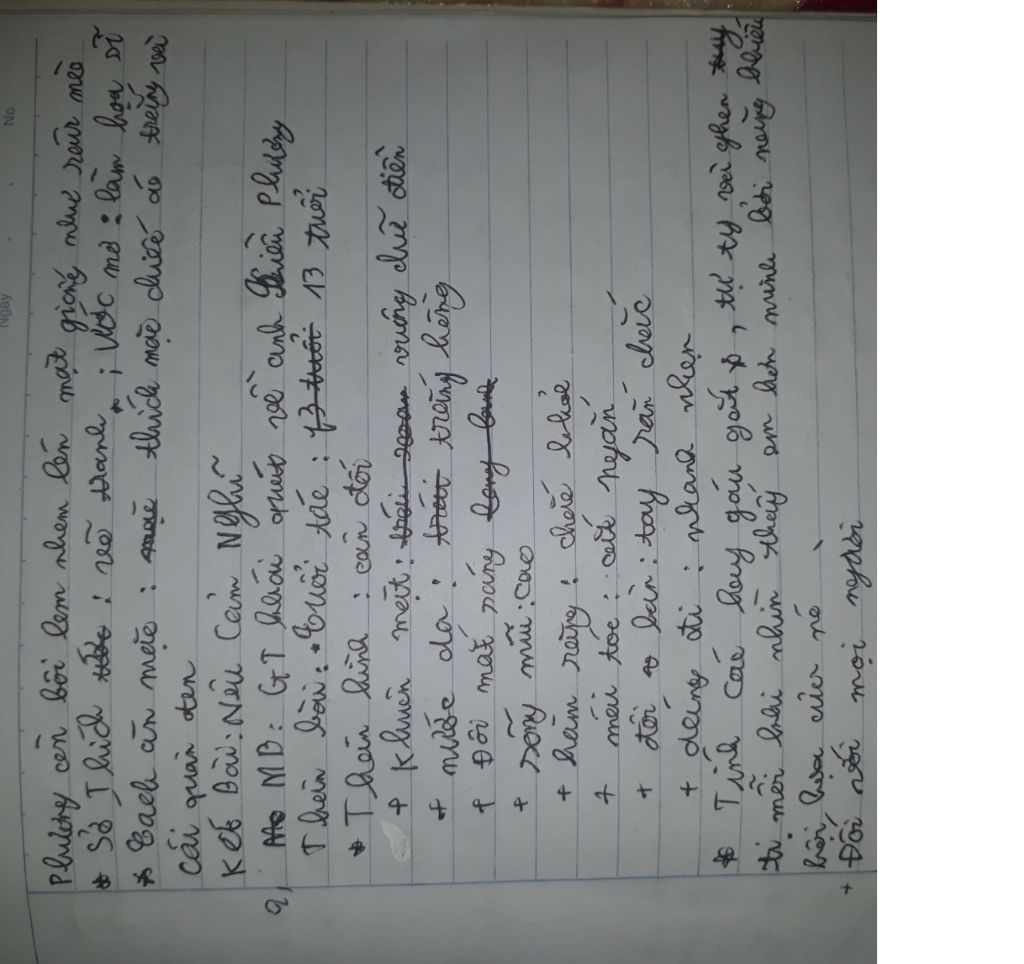 No.
Ngày
Phương còn bôi lem nhem lên mặt giống như râu mèo
* Sở Thích : vẽ tranh ; Ước mơ : làm họa sĩ
* Cách ăn mặc : thích mặc chiếc áo trắng với
cái quần đen
Kết Bài : Nêu Cảm Nghĩ
a, MB : GT khái quát về anh Kiều Phương
Thân bài : Tuổi tác : 13 tuổi 13 tuổi
* Thân hình : cân đối
+ Khuôn mặt : vuông chữ điền
+ nước da : trắng hồng
+ Đôi mắt sáng long lanh
+ sống mũi : cao
+ hàm răng : chắc khỏe
+ mái tóc : cắt ngắn
+ đôi bàn tay rắn chắc
+ dáng đi : nhanh nhẹn
* Tính Cách hay gáu gắt , tự ty và ghen
tị mỗi khi nhìn thấy em hơn mình bởi năng khiếu
hội họa của nó
+ Đối với mọi người